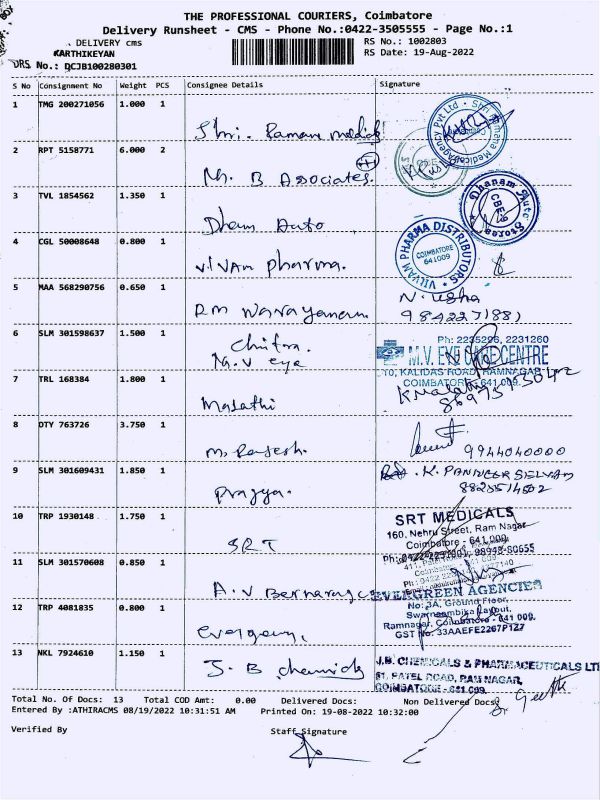 THE PROFESSIONAL COURIERS, Coimbatore
Delivery Runsheet - CMS - Phone No.:0422-3505555 - Page No.:1
DELIVERY cms
KARTHIKEYAN
DRS No.: DCJB100280301
RS No.: 1002803
RS Date: 19-Aug-2022
S No Consignment No Weight PCS Consignee Details Signature
1 TMG 200271056 1.000 1
Shri. Raman medicals
2 RPT 5158771 6.000 2
M. B Associates.
3 TVL 1854562 1.350 1
Dhanam Auto
Dhanam Auto Stores
CBE-9
4 CGL 50008648 0.800 1
VIVAM pharma.
VILVAM PHARMA DISTRIBUTORS
COIMBATORE
641009
5 MAA 568290756 0.650 1
RM Narayanan.
N. usha
9842231881
6 SLM 301598637 1.500 1
Chitra.
M.V eye
Ph: 2235296, 2231260
M.V. EYE CARE CENTRE
10, KALIDAS ROAD, RAMNAGAR,
COIMBATORE - 641 009.
7 TRL 168384 1.800 1
Malathi
K Malathi
8 DTY 763726 3.750 1
M. Rajesh.
9944040000
9 SLM 301609431 1.850 1
prajya.
K. PANNEER SELVAM
10 TRP 1930148 1.750 1
SRT
SRT MEDICALS
160, Nehru Street, Ram Nagar
Coimbatore - 641 009.
11 SLM 301570608 0.850 1
A. V
EVERGREEN AGENCIES
No: 3A, Ground Floor,
Swarnambika Layout,
Ramnagar, Coimbatore - 641 009.
GST No: 33AAEFE2267P1Z7
12 TRP 4081835 0.800 1
evergreen,
13 NKL 7924610 1.150 1
J. B chemicals
J.B. CHEMICALS & PHARMACEUTICALS LT
81, PATEL ROAD, RAM NAGAR,
COIMBATORE - 641 009.
Geetha
Total No. Of Docs: 13 Total COD Amt: 0.00 Delivered Docs: Non Delivered Docs:
Entered By :ATHIRACMS 08/19/2022 10:31:51 AM Printed On: 19-08-2022 10:32:00
Verified By Staff Signature